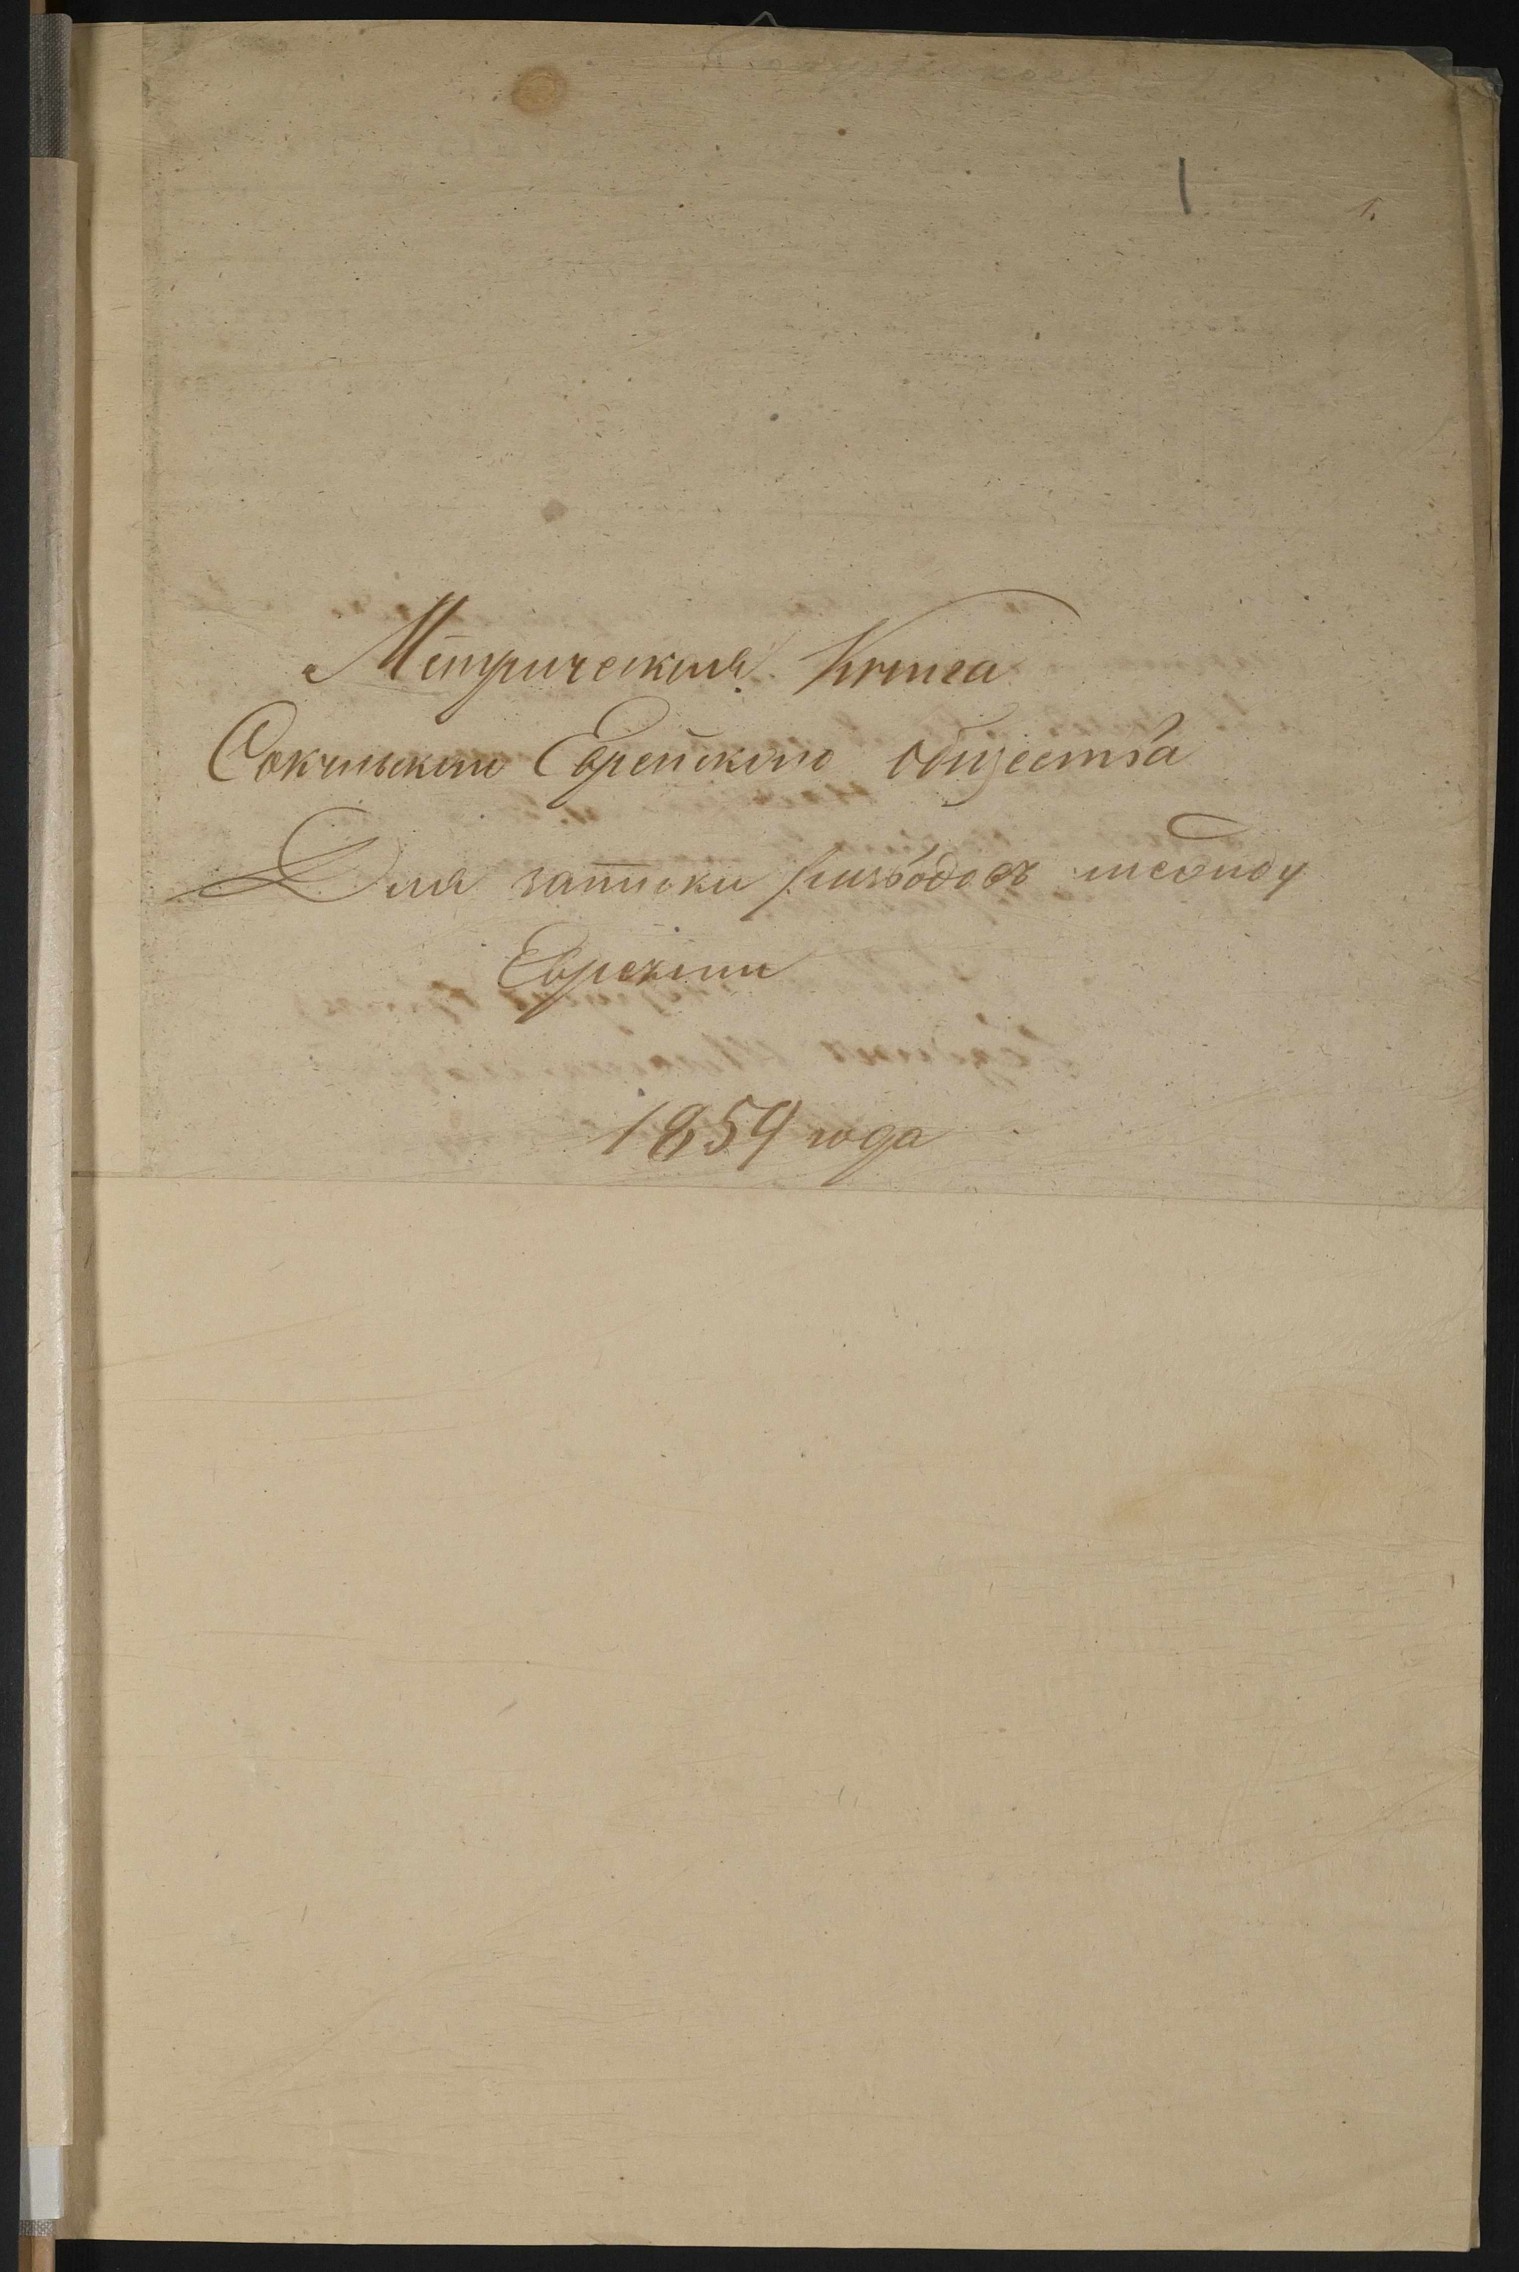 1
1.
Метрическая Книга
Еврейского общества
Для записки разводовъ между
Евреями
1859 года